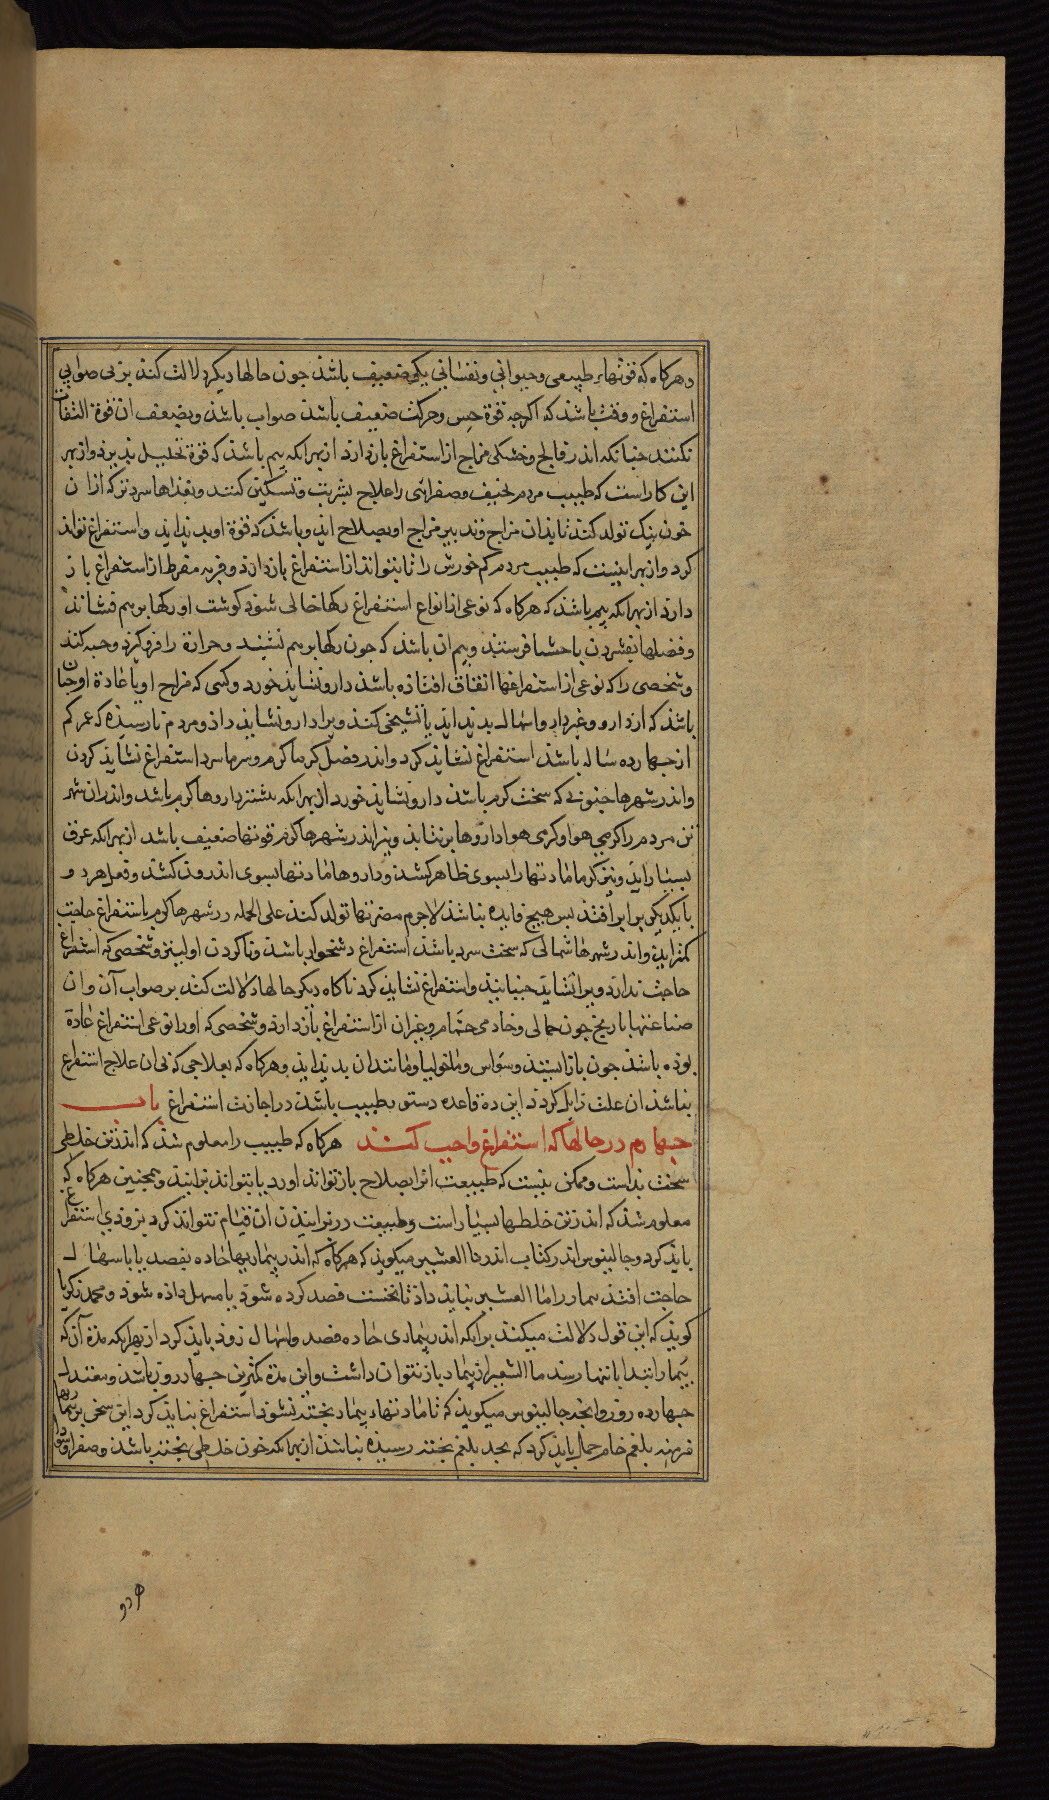 و هرکاه که قوتهاء طبیعی و حیوانی و نفسانی یکی ضعیف باشذ جون حالها دیکر دلالت کند بر بی صوابی
استفراغ و وقت باشذ که اکرجه قوة حس و حرکت ضعیف باشذ صواب باشذ و بضعف ان قوة التفات
نکنند جنانکه اندر فالج و خشکی مزاج از استفراغ بازدارد از بهر انکه بیم باشذ که قوة تحلیل بذیرد و از بهر
این کار است که طبیب مردم نحیف و صفرائی را علاج بشربت و تسکین کنند و بغذاها سردتر که از ان
خون نیک تولد کند تا بذان مزاج وتدبیر مزاج او بصلاح اید و باشذ که قوة او بدید اید و استفراغ تواند
کرد و از بهر اینست که طبیب مردم کم خورش را تا بتواند از استفراغ بازدارد و فربه مفرط از استفراغ باز
دارد از بهر انکه بیم باشذ که هرکاه که نوعی از انواع استفراغ رکها خالی شود کوشت او رکها بر هم فشاند
و فضلها بفشردن باحشا فرستذ و بیم ان باشذ که جون رکها بر هم نشیند و حرارة را فرو کیرد و خبه کند
و شخصی را که نوعی از استفراغها اتفاق افتاذه باشذ دارو نشاید خورد و کسی که مزاج او یا عادة او جنان
باشذ که از دارو و غیر دارو اسهال بدید اید یا تشنجی کند ویرا دارو نشاید داذ و مردم نارسیذه که عمر کم
از جهارده ساله باشذ استفراغ نشاید کرد و اندر فصل کرما کرم و سرما سرد استفراغ نشاید کردن
و اندر شهرها جنوبی که سخت کرم باشذ دارو نشاید خورد از بهر انکه بیشتر داروها کرم باشد و اندر ان شهر
تن مردم را کرمی هوا و کرمی هوا داروها برنتابد و نیز اندر شهرها کرم قوتها ضعیف باشد از بهر انکه عرق
بسیار اید و نیز کرما مادتها را بسوی ظاهر کشد و داروها مادتها بسوی اندرون کشذ و فعل هر دو
با یکدیکر برابر افتد بس هیج فایده نباشذ لاجرم مضرتها تولد کند علی الجمله در شهرها کرم باستفراغ حاجت
کمتر اید و اندر شهرها شمالی که سخت سرد باشذ استفراغ دشخوار باشذ و ناکردن اولیتر و شخصی که استفراغ
حاجت ندارد ویرا نشاید جنبانید و استفراغ نشاید کرد ناکاه دیکر حالها دلالت کند بر صواب آن و ان
صناعتها با ریج جون حمالی و خادمی حمام و غیر ان از استفراغ بازدارد و شخصی که او را نوعی استفراغ عادة
بوذه باشذ جون بازایستذ وسواس و مالنخولیا و مانند ان بدید اید و هرکاه که بعلاجی که بی ان علاج استفراغ
نباشذ ان علت زایل کردد این ده قاعده دستور طبیب باشذ در اجازت استفراغ باب
جهارم در حالها که استفراغ واجب کند هرکاه که طبیب را معلوم شذ که اندر تن خلطی
سخت بد است و ممکن نیست که طبیعت انرا بصلاح باز تواند اورد یا بتواند برانید و همجنین هرکاه که
معلوم شذ که اندر تن خلطها بسیار است و طبیعت در برانیذن ان قیام نتواند کرد بزودی استفراغ
باید کرد و جالینوس اندر کتاب اندر ما الشعیر میکوید که هرکاه که اندر بیماریها حاده بفصد یا باسهال
حاجت افتد بیمار را ما الشعیر نباید داذ تا نخست فصد کرده شود یا مسهل داذه شود و محمد زکریا
کوید که این قول دلالت میکند بر انکه اندر بیماری حاده فصد و اسهال زود باید کرد از بهر انکه مدة آن که
بیمار از ابتدا بانتها رسذ ما الشعیر از بیمار باز نتوان داشت و این مدة کمترین جهار روز باشد و معتدل
جهارده روز و انجه جالینوس میکوید که تا مادتهاء بیمار بخته نشود استفراغ نباید کرد این سخن بر بیماریها
مزمنه بلغم خام حمل باید کرد که بحد بلغم بخته رسیذه نباشذ از بهر انکه خون خلطی بخته باشذ و صفرا و سودا